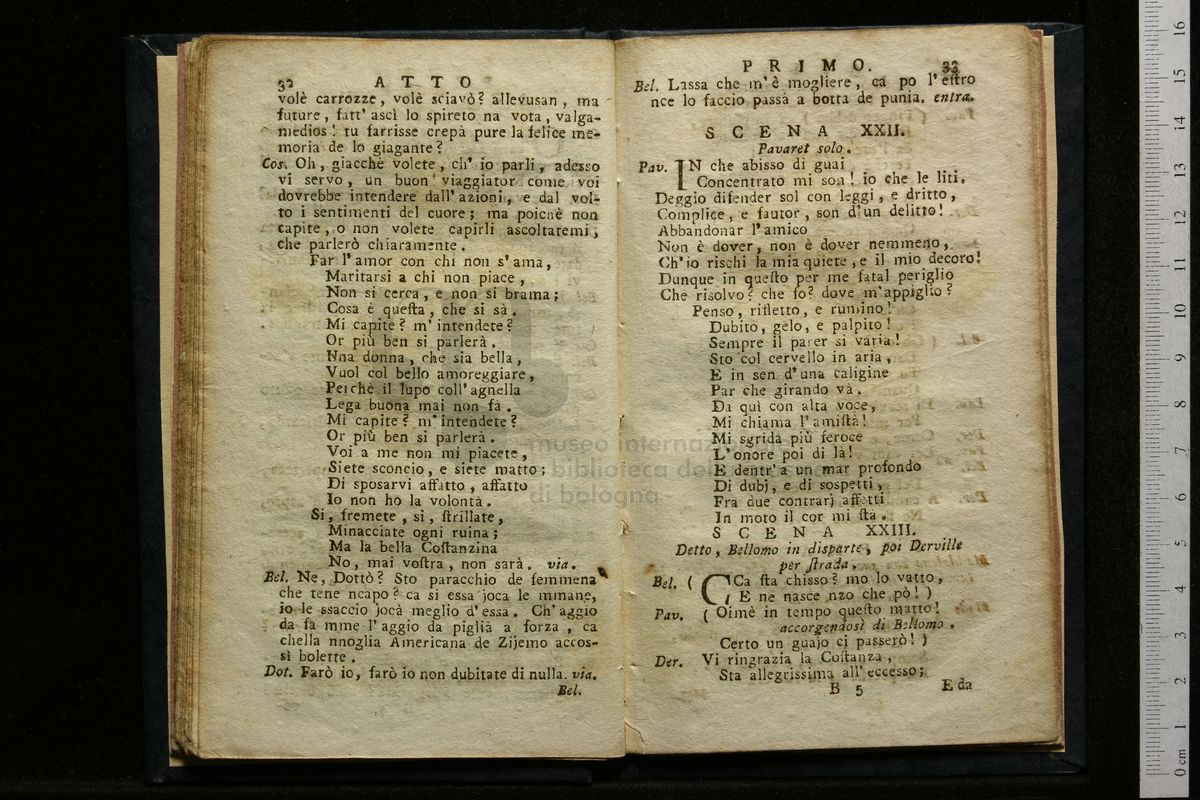 32 ATTO
volè carrozze, volè sciavò? allevusan, ma
future, fatt' ascì lo spireto na vota, valga-
medios! tu farrisse crepà pure la felice me-
moria de lo giagante?
Cos. Oh, giacchè volete, ch' io parli, adesso
vi servo, un buon viaggiator come voi
dovrebbe intendere dall' azioni, e dal vol-
to i sentimenti del cuore; ma poichè non
capite, o non volete capirli ascoltatemi,
che parlerò chiaramente.
Far l' amor con chi non s' ama,
Maritarsi a chi non piace,
Non si cerca, e non si brama;
Cosa è questa, che si sà.
Mi capite? m' intendete?
Or più ben si parlerà.
Nna donna, che sia bella,
Vuol col bello amoreggiare,
Perchè il lupo coll' agnella
Lega buona mai non fà.
Mi capite? m' intendete?
Or più ben si parlerà.
Voi a me non mi piacete,
Siete sconcio, e siete matto;
Di sposarvi affatto, affatto
Io non ho la volontà.
Si, fremete, si, strillate,
Minacciate ogni ruina;
Ma la bella Costanzina
No, mai vostra, non sarà. via.
Bel. Ne, Dottò? Sto paracchio de femmena
che tene ncapo? ca si essa joca le mmane,
io le ssaccio jocà meglio d' essa. Ch' aggio
da fa mme l' aggio da piglià a forza, ca
chella nnoglia Americana de Zijemo accos-
sì bolette.
Dot. Farò io, farò io non dubitate di nulla. via.
Bel.
PRIMO. 33
Bel. Lassa che m' è mogliere, ca po l' estro
nce lo faccio passà a botta de punia. entra.
SCENA XXII.
Pavaret solo.
Pav. IN che abisso di guai
Concentrato mi son! io che le liti.
Deggio difender sol con leggi, e dritto,
Complice, e fautor, son d' un delitto!
Abbandonar l' amico
Non è dover, non è dover nemmeno,
Ch' io rischi la mia quiete, e il mio decoro!
Dunque in questo per me fatal periglio
Che risolvo? che fo? dove m' appiglio?
Penso, rifletto, e rumino!
Dubito, gelo, e palpito!
Sempre il parer si varia!
Sto col cervello in aria,
E in sen d' una caligine
Par che girando và.
Da quì con alta voce,
Mi chiama l' amistà!
Mi sgrida più feroce
L' onore poi di là!
E dentr' a un mar profondo
Di dubj, e di sospetti,
Fra due contrarj affetti
In moto il cor mi sta.
SCENA XXIII.
Detto, Bellomo in disparte, poi Derville
per strada.
Bel. ( CCa sta chisso? mo lo vatto,
E ne nasce nzo che pò! )
Pav. ( Oimè in tempo questo matto!
accorgendosi di Bellomo.
Certo un guajo ci passerò! )
Der. Vi ringrazia la Costanza,
Sta allegrissima all' eccesso;
B 5 E da
museo internazionale
biblioteca della
di bologna
0 cm 1 2 3 4 5 6 7 8 9 10 11 12 13 14 15 16